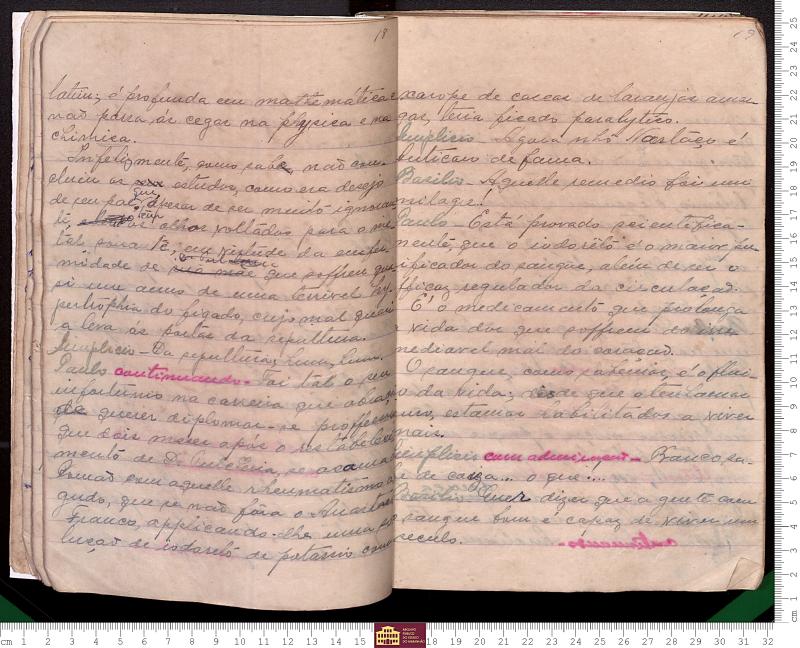 18
latim; é profunda em mathemática e
não passa de cegar na physica e na
chimica.
Infelizmente, como sabe, não con-
cluiu os estudos, como era desejo
de seu pai, que apesar de ser muito ignoran
te, os olhos voltados para o
tal em virtude da enfer
midade de que soffreu qua
si um anno de uma terrivel hy
pertrophia do figado, cujo mal quasi
a leva ás portas da sepultura.
Simplicio - Da sepultura, hum, hum.
Paulo continuando - Foi tal o seu
infortunio na carreira que abra
querer diplomar-se professora
que dois mezes após o restabeleci
mento de D. , se acama
Romão com aquelle rheumatismo a
gudo, que se não fôra o Anastac
Franco, applicando-lhe uma so
lução de iodoreto de potassio com
19
xarope de cascas de laranjas amar-
gas, teria ficado paralytico.
Simplicio - Agora nhô Nastaço é
buticaro de fama.
Basilio - Aquelle remedio foi um
milagre!
Paulo - Está provado scientifica-
mente, que o iodoreto é o maior pu
rificador do sangue, além de ser o
efficaz regulador da circulação.
É o medicamento que prolonga
a vida dos que soffrem do irre
mediavel mal do coração.
O sangue, como sabemos, é o flui-
do da vida; desde que o tenhamos
puro, estamos habilitados a viver
mais.
Simplicio com admiração - Banco, sa-
be de cousa... o que ...
Basilio Quer dizer que a gente com
sangue bom é capaz de viver um
seculo.
continuando -
ARQUIVO PÚBLICO DO ESTADO DO MARANHÃO
cm 1 2 3 4 5 6 7 8 9 10 11 12 13 14 15 17 18 19 20 21 22 23 24 25 26 27 28 29 30 31 32
cm 1 2 3 4 5 6 7 8 9 10 11 12 13 14 15 16 17 18 19 20 21 22 23 24 25